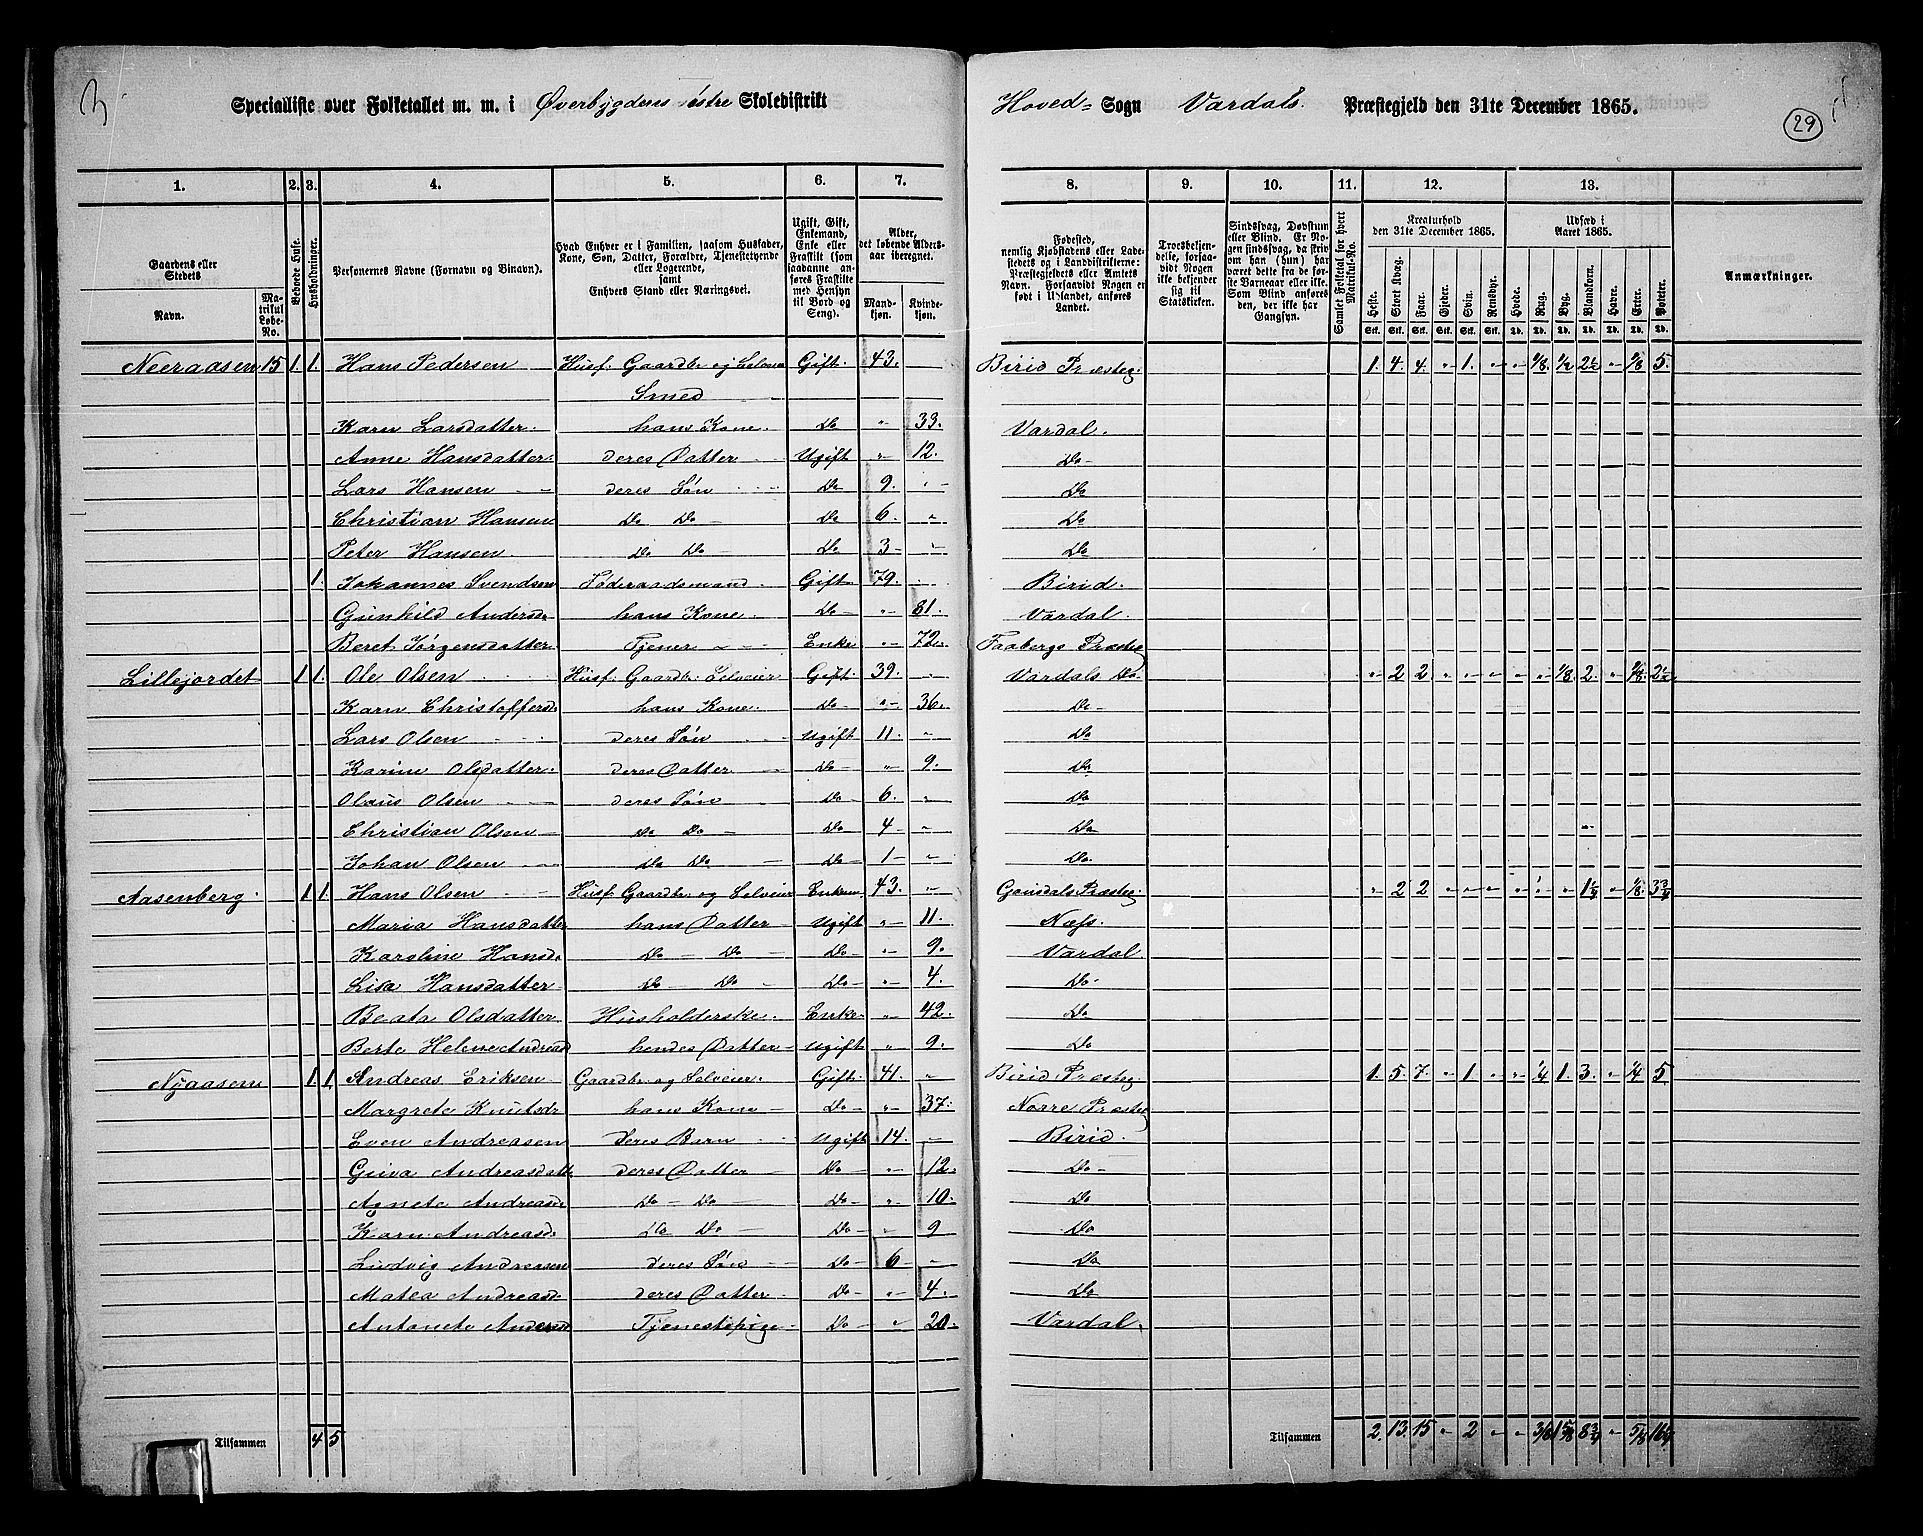 3
Specialliste over Folketallet m. m. i Øverbygdens østre Skoledistrikt
Hoved- Sogn Vardals Præstegjeld den 31te December 1865.
29
1. 2. 3. 4. 5. 6. 7.
8. 9. 10. 11. 12. 13.
Gaardens eller Stedets
Navn.
Matrikul Løbe-No.
Beboede Huse.
Husholdninger.
Personernes Navne (Fornavn og Binavn).
Hvad Enhver er i Familien, saasom Husfader, Kone, Søn, Datter, Forældre, Tjenestetyende eller Logerende, samt Enhvers Stand eller Næringsvei.
Ugift, Gift, Enkemand, Enke eller Fraskilt (som saadanne anføres Fraskilte med Hensyn til Bord og Seng).
Alder, det løbende Aldersaar iberegnet.
Mandkjøn. Kvindekjøn.
Fødested, nemlig Kjøbstadens eller Ladestedets og i Landdistrikterne: Præstegjeldets eller Amtets Navn. Forsaavidt Nogen er født i Udlandet, anføres Landet.
Troesbekjendelse, forsaavidt Nogen ikke bekjender sig til Statskirken.
Sindssvag, Døvstum eller Blind. Er Nogen sindssvag, da skrives om han (hun) har været dette fra de første Barneaar eller ikke. Som Blind anføres den, der ikke har Gangsyn.
Samlet Folketal for hvert Matrikul-No.
Kreaturhold den 31te December 1865.
Heste. Stort Kvæg. Faar. Gjeder. Svin. Rensdyr.
Udsæd i Aaret 1865.
Hvede. Rug. Byg. Blandkorn. Havre. Erter. Poteter.
Anmærkninger.
Neeraasen 15 1. 1. Hans Pedersen Husf. Gaardbr og Selveier Gift. 43. Birid Præsteg. 1. 4. 4. " 1. " " 1/8. 1/2 2 1/2 " 1/8 5.
Smed
Karn Larsdatter. hans Kone. Do " 33. Vardal.
Anne Hansdatter. deres Datter Ugift " 12. Do
Lars Hansen deres Søn Do 9. " Do
Christian Hansen Do Do Do 6. " Do
Peter Hansen Do Do Do 3 " Do
1. Johannes Svendsen Føderaadsmand. Gift 79. " Birid.
Gunhild Andersd. hans Kone. Do " 81. Vardal.
Beret Jørgensdatter Tjener Enke " 72. Faabergs Præsteg
Lillejordet 1 1. Ole Olsen Husf. Gaardbr. Selveier Gift. 39. " Vardals Do " 2 2. " " " " " 1/8. 2. " 2 1/2
Karn Christoffersd. hans Kone. Do " 36. Do
Lars Olsen deres Søn Ugift 11. " Do
Karine Olsdatter. deres Datter Do " 9. Do
Olaus Olsen deres Søn Do 6. " Do
Christian Olsen Do Do Do 4 " Do
Johan Olsen Do Do Do 1 " Do.
Aasenberg. 1 1. Hans Olsen Husf. Gaardbr. og Selveier Enkem. 43. " Gausdals Præsteg. " 2 2 " " " " " " " 1/8. 3 3/4
Maria Hansdatter hans Datter Ugift " 11. Næss.
Karoline Hansd. Do Do Do " 9. Vardal
Lisa Hansdatter Do Do Do " 4. Do
Beate Olsdatter Husholderske. Enke. " 42. Do
Berte Helene Andreasd hendes Datter Ugift " 9. Do
Nøaasen 1. 1 Andreas Eriksen Gaardbr. og Selveier. Gift. 41. " Birid Præsteg. 1. 5. 7. " 1 " " 1/4 1. 3. " 1/4 5
Margrete Knutsdr hans Kone Do " 37. Norre Præsteg
Even Andreasen deres Barn Ugift 14. " Birid.
Guva Andreasdatt. deres Datter Do " 12. Do
Agnete Andreasd Do Do Do " 10. Do
Karn Andreasd. Do Do Do " 9 Do
Ludvig Andreasen deres Søn Do 6 " Do
Matea Andreasd. deres Datter Do " 4. Do
Antonete Andersd Tjenestepige Do " 20. Vardal.
Tilsammen 4 5
Tilsammen 2. 13. 15 " 2 " " 3/8 1 5/8 8 3/4 " 5/8 16 1/4